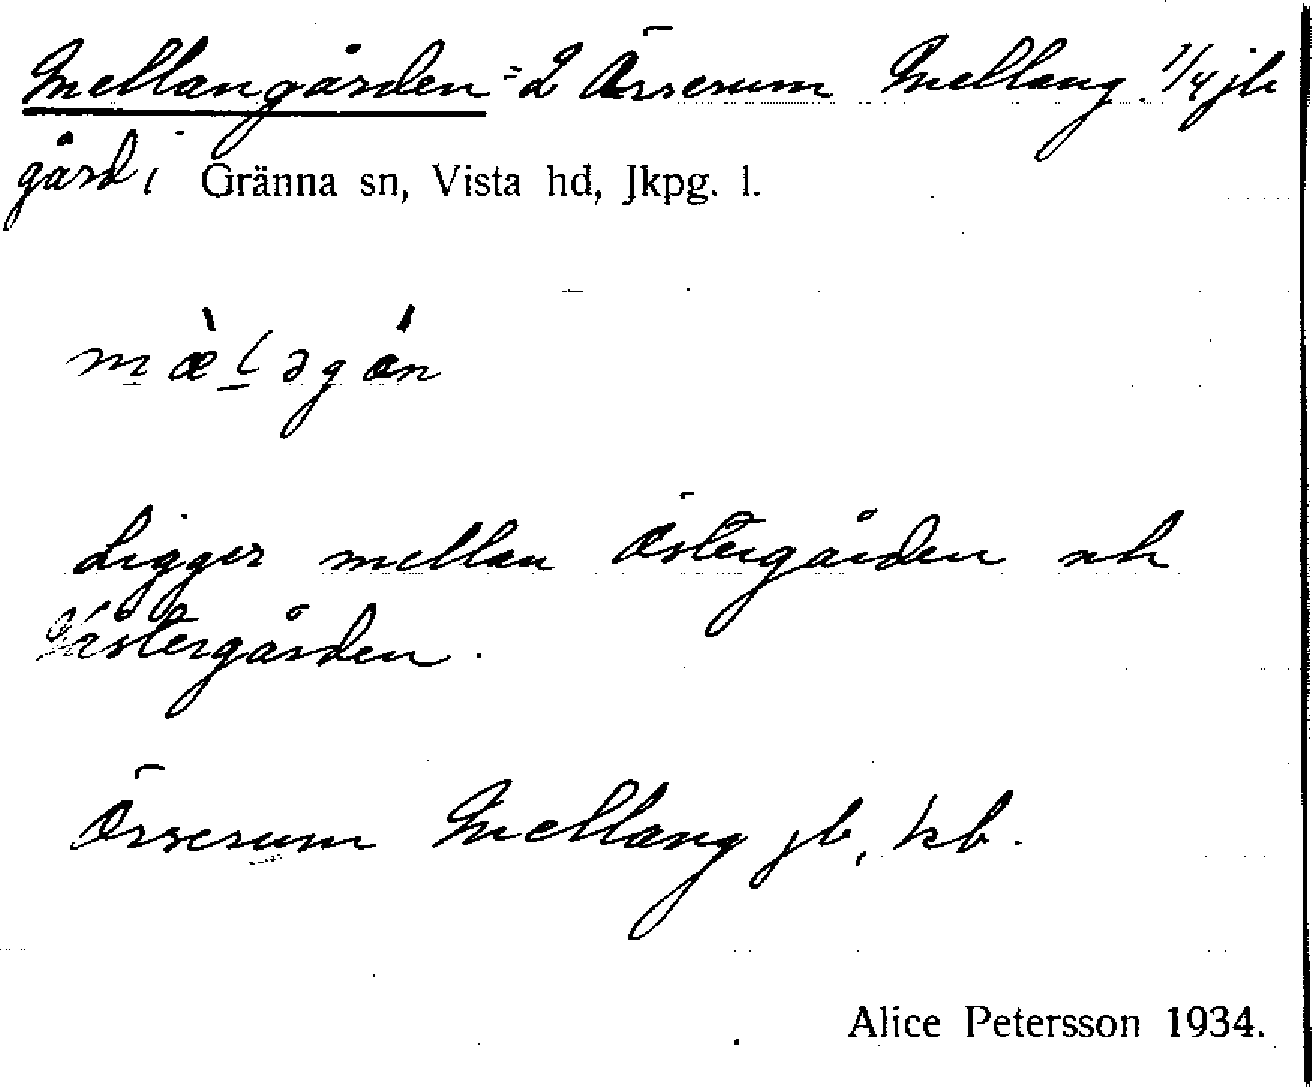 Mellangården = 2 Örserum Mellang. 1/4 jb
gård i Gränna sn, Vista hd, Jkpg. l.
mæ̀ləgán
Ligger mellan Östergården och
Västergården.
Örserum Mellang jb, kb.
Alice Petersson 1934.